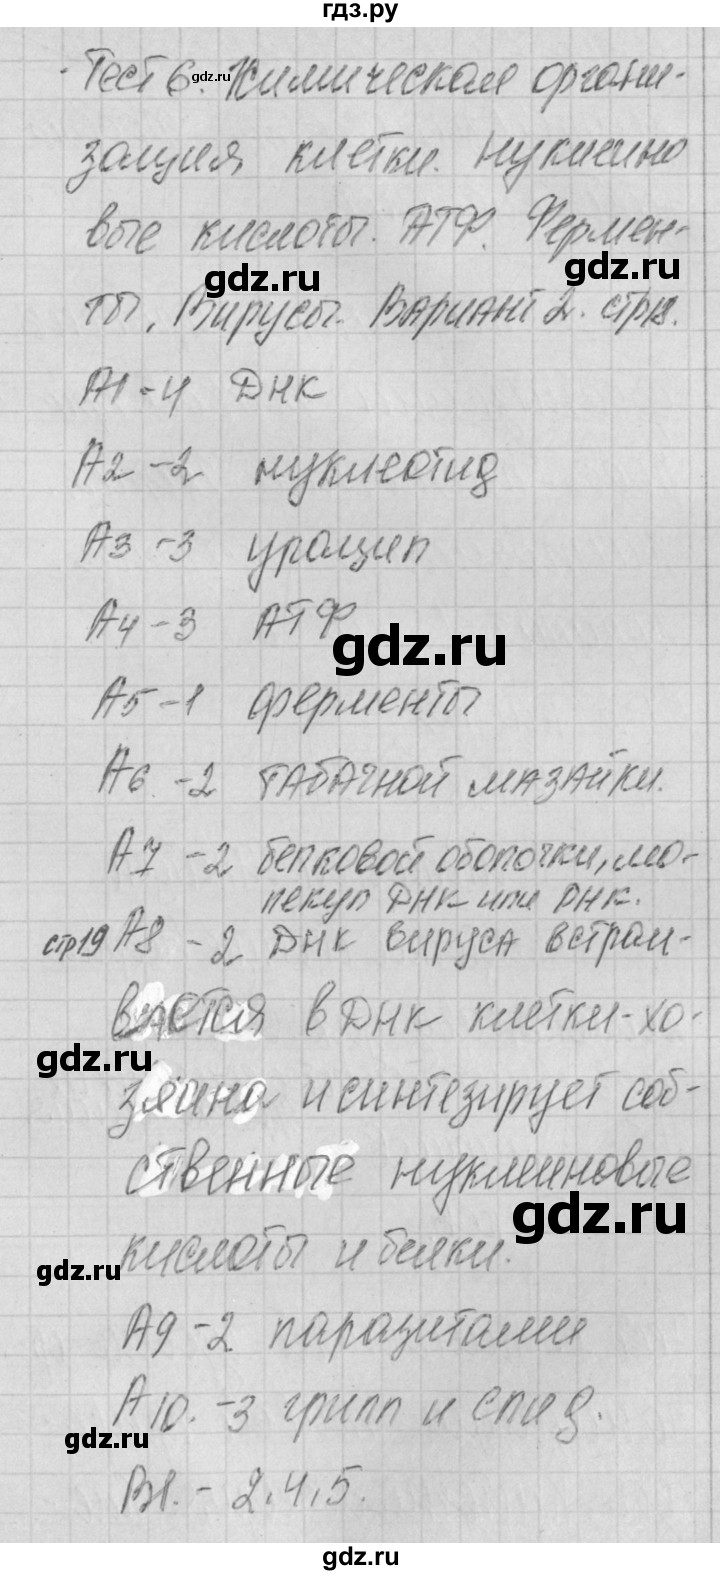 гдз.ру
Тест 6. Химическая органи-
gdz.ru
зация клетки. Нуклеино
вые кислоты. АТФ. Фермен-
gdz.ru
gdz.ru
ты. Вирусы. Вариант 2. стр18.
А1-4 ДНК
А2-2 нуклеотид
А3-3 урацил
А4-3 АТФ
gdz.ru
А5-1 ферменты
А6-2 табачной мазайки.
А7-2 белковой оболочки, мо-
лекул ДНК или РНК.
стр19 А8-2 ДНК вируса встраи-
вается в ДНК клетки-хо-
gdz.ru
зяина и синтезирует соб-
ственные нуклеиновые
gdz.ru
кислоты и белки.
gdz.ru
А9-2 паразитами
А10.-3 грипп и спид.
gdz.ru
В1.-2,4,5.
gdz.ru